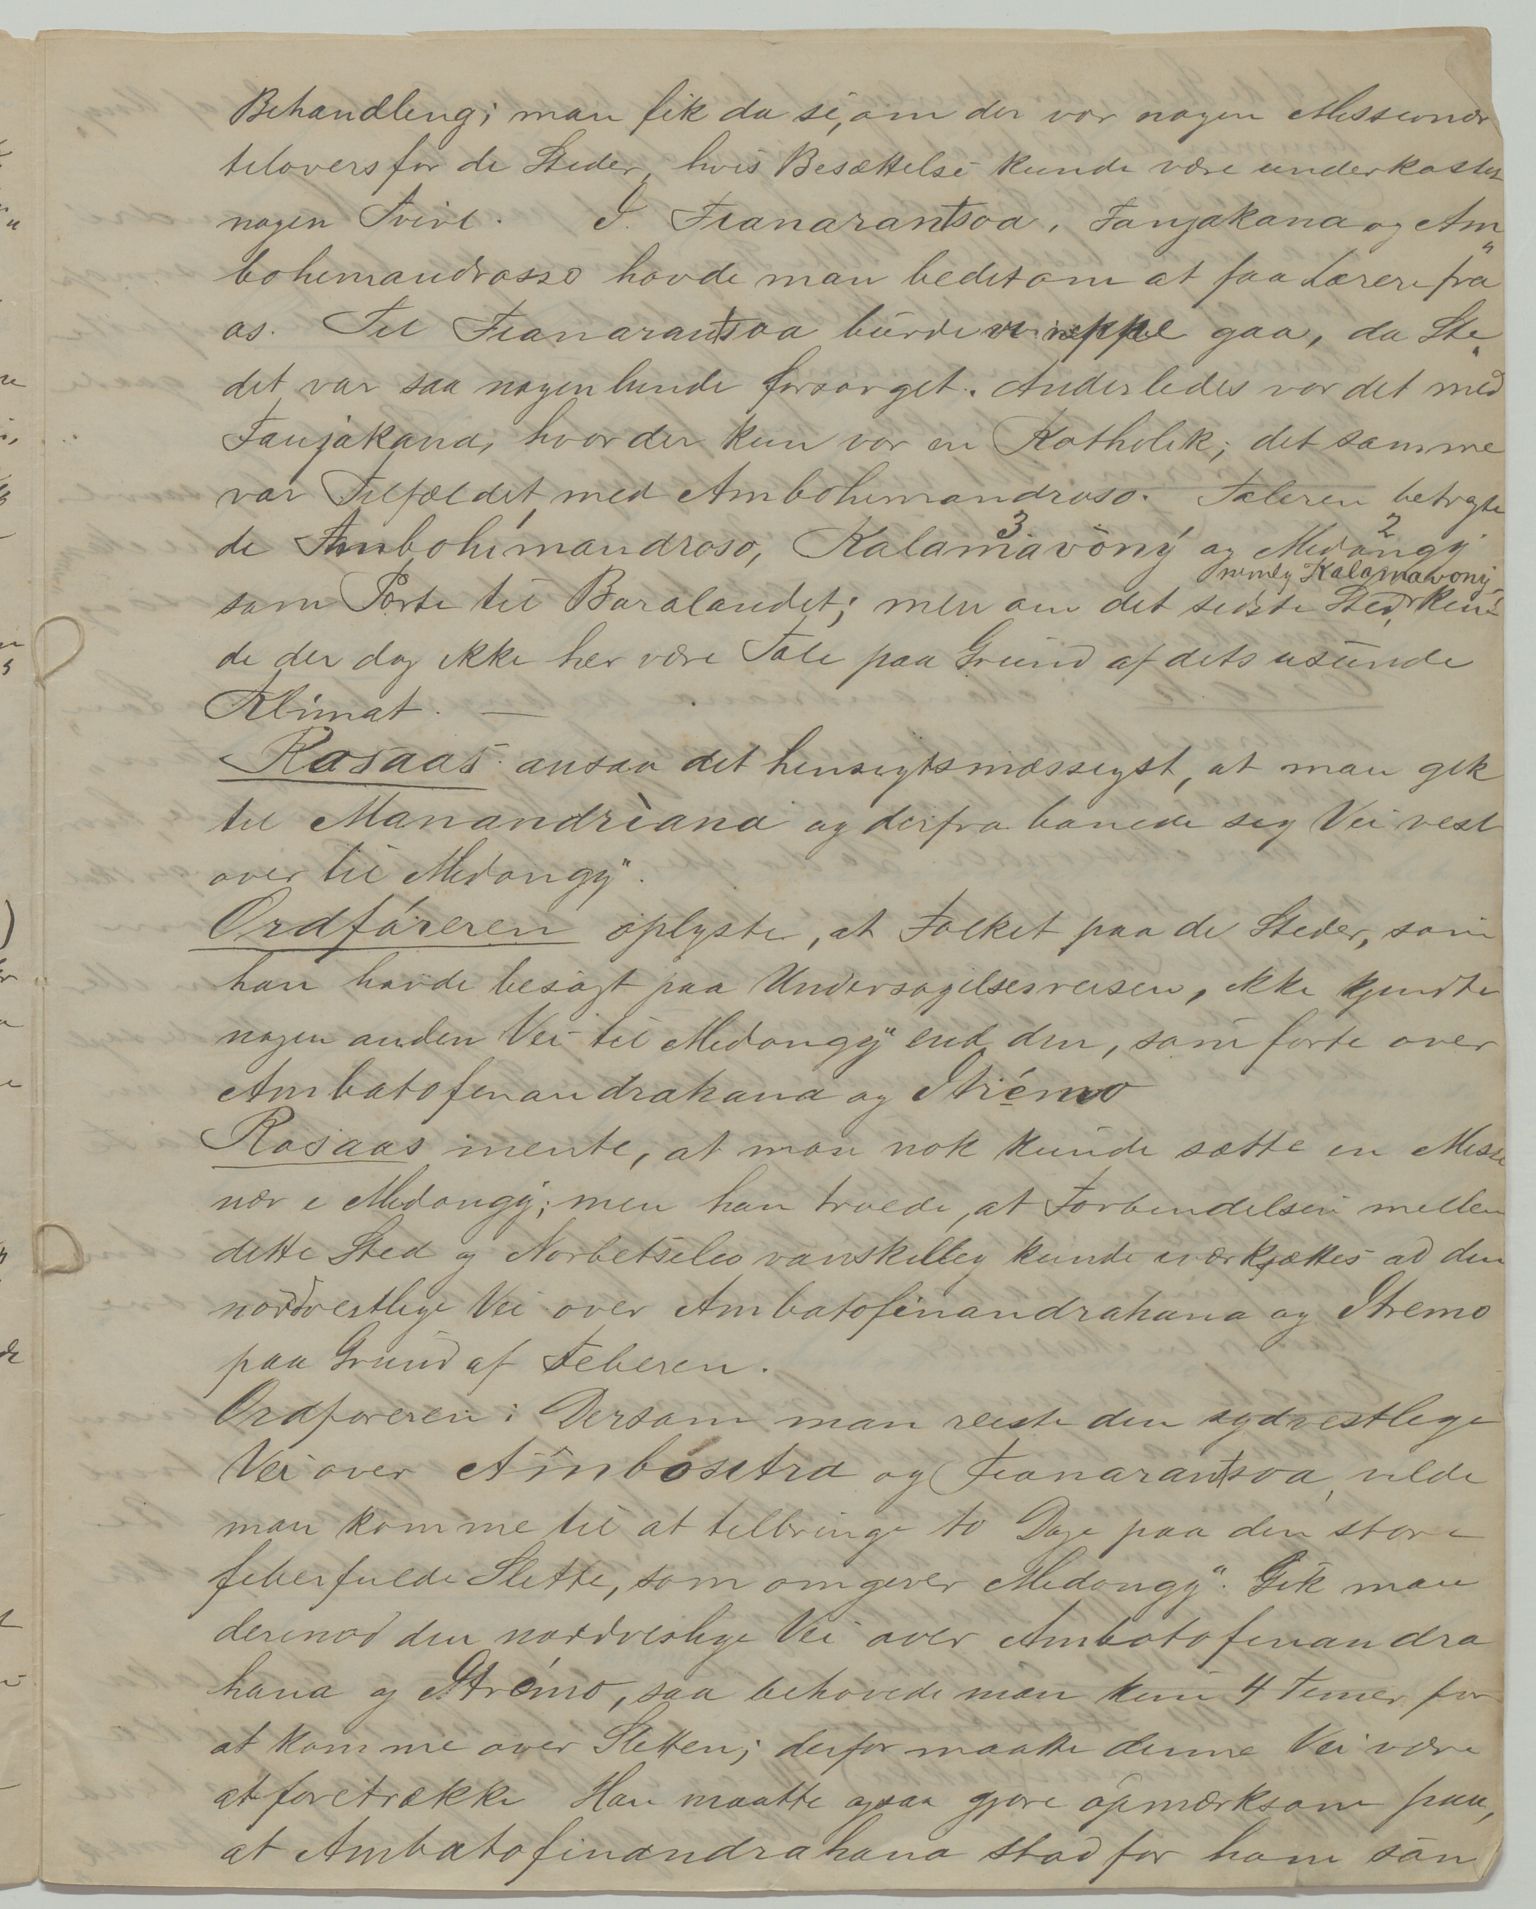 Behandling; man fik da se, om der var nogen Missionær
tilovers for de Steder, hvis Besættelse kunde være underkastet
nogen Tvivl. I Fianarantsoa, Fanjakana og Am„
bohimandroso havde man bedet om at faa Lærere fra
os. Til Fianarantsoa burde vi neppe gaa, da Ste„
det var saa nogenlunde forsörget. Anderledes var det med
Fanjakana, hvor der kun var en Katholik; det samme
var Tilfældet med Ambohimandroso. Taleren betragte
de Ambohimandroso, Kalamavöny̆ 3 og Midongy̆ 2
nemlig Kalamavony̆
som Porte til Baralandet; men om det sidste Sted, kun„
de der dog ikke her være Tale paa Grund af dets usunde
Klimat. —
Rosaas ansaa det hensigtsmæssigst, at man gik
til Manandrìana og derfra banede sig Vei vest
over til Midongy̆.
Ordföreren oplyste, at Folket paa de Steder, som
han havde besögt paa Undersögelsesreisen, ikke kjendte
nogen anden Vei til Midongy̆ end den, som förte over
Ambatofinandrahana og Itrémo
Rosaas mente, at man nok kunde sætte en Missio
nær i Midongy̆; men han troede, at Forbindelsen mellem
dette Sted og Norbetsileo vanskellig kunde iværksættes ad den
nordvestlige Vei over Ambatofinandrahana og Itremo
paa Grund af Feberen.
Ordföreren: Dersom man reiste den sydvestlige
Vei over Ambósitra og Fianarantsoa, vilde
man komme til at tilbringe to Dage paa den store
feberfulde Slette, som omgiver Midongy̆. Gik man
derimod den nordvestlige Vei over Ambatofinandra
hana og Itrémo, saa behövede man kun 4 Timer for
at komme over Sletten; derfor maatte denne Vei være
at foretrække Han maatte ogsaa gjöre opmærksom paa,
at Ambatofinandrahana stod for ham som